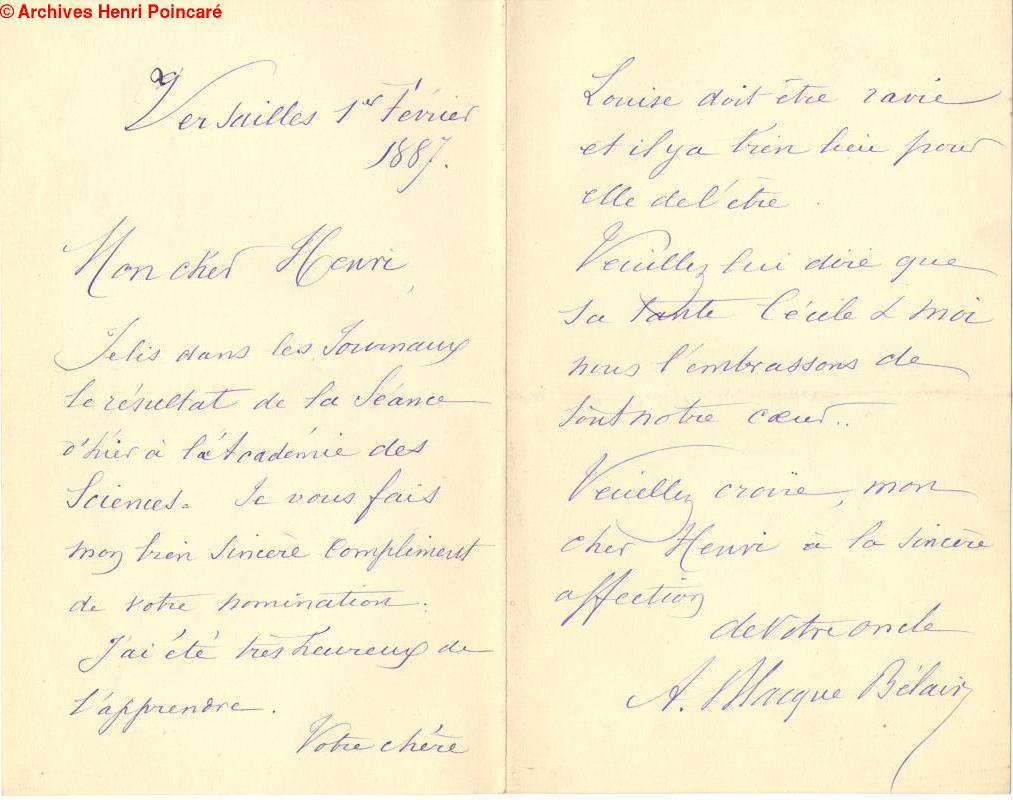 © Archives Henri Poincaré
Versailles 1er Février
1887.
Mon cher Henri,
Je lis dans les Journaux
le résultat de la Séance
d'hier à l'Académie des
Sciences. Je vous fais
mon bien sincère compliment
de votre nomination.
J'ai été très heureux de
l'apprendre.
Votre chère
Louise doit être ravie
et il y a bien lieu pour
elle de l'être.
Veuillez lui dire que
sa tante Cécile & moi
nous l'embrassons de
tout notre cœur..
Veuillez croire, mon
cher Henri à la sincère
affection
de votre oncle
A. Macque Bélair